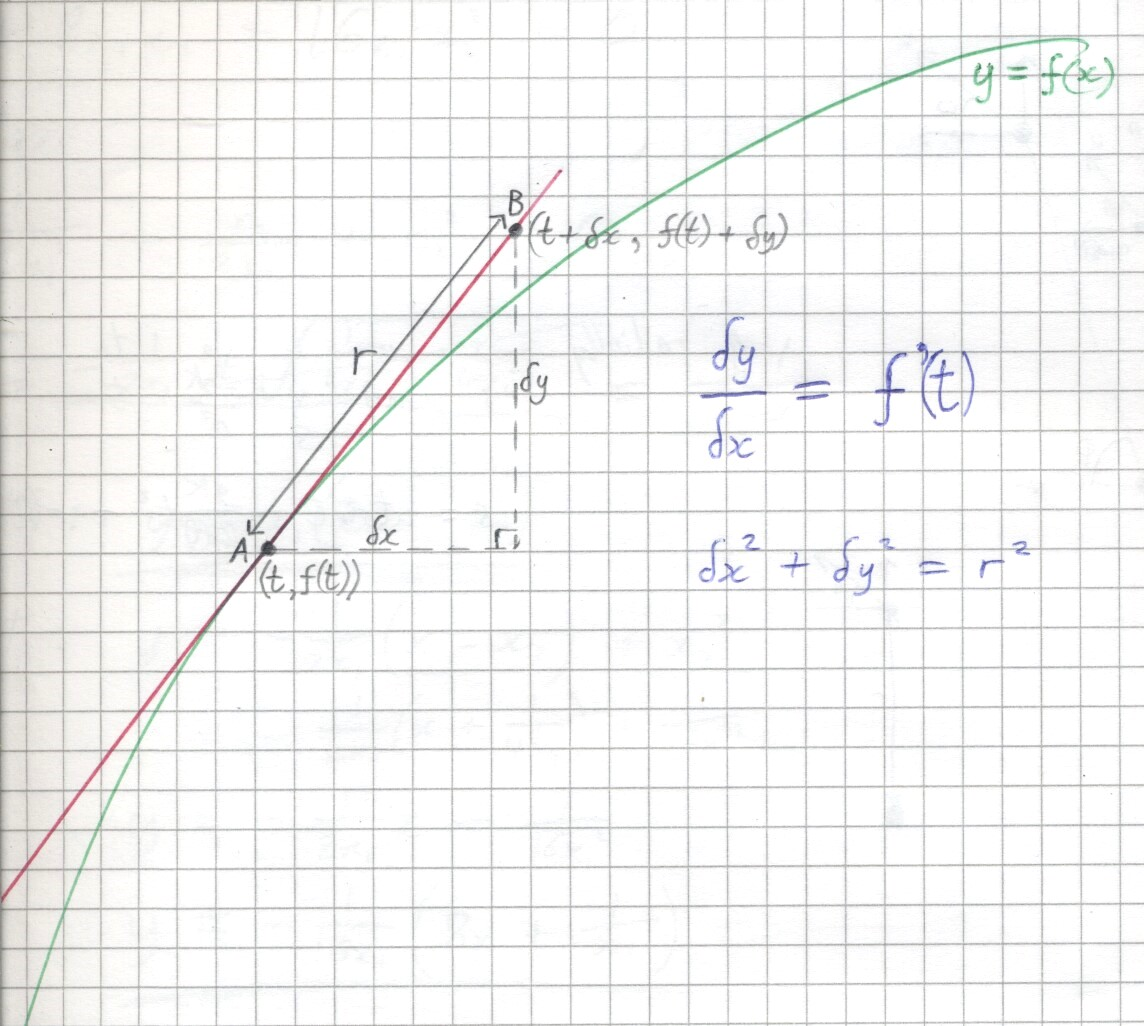 y = f(x)
B
(t + δx, f(t) + δy)
r
δy
δy/δx = f'(t)
A
δx
(t, f(t))
δx² + δy² = r²